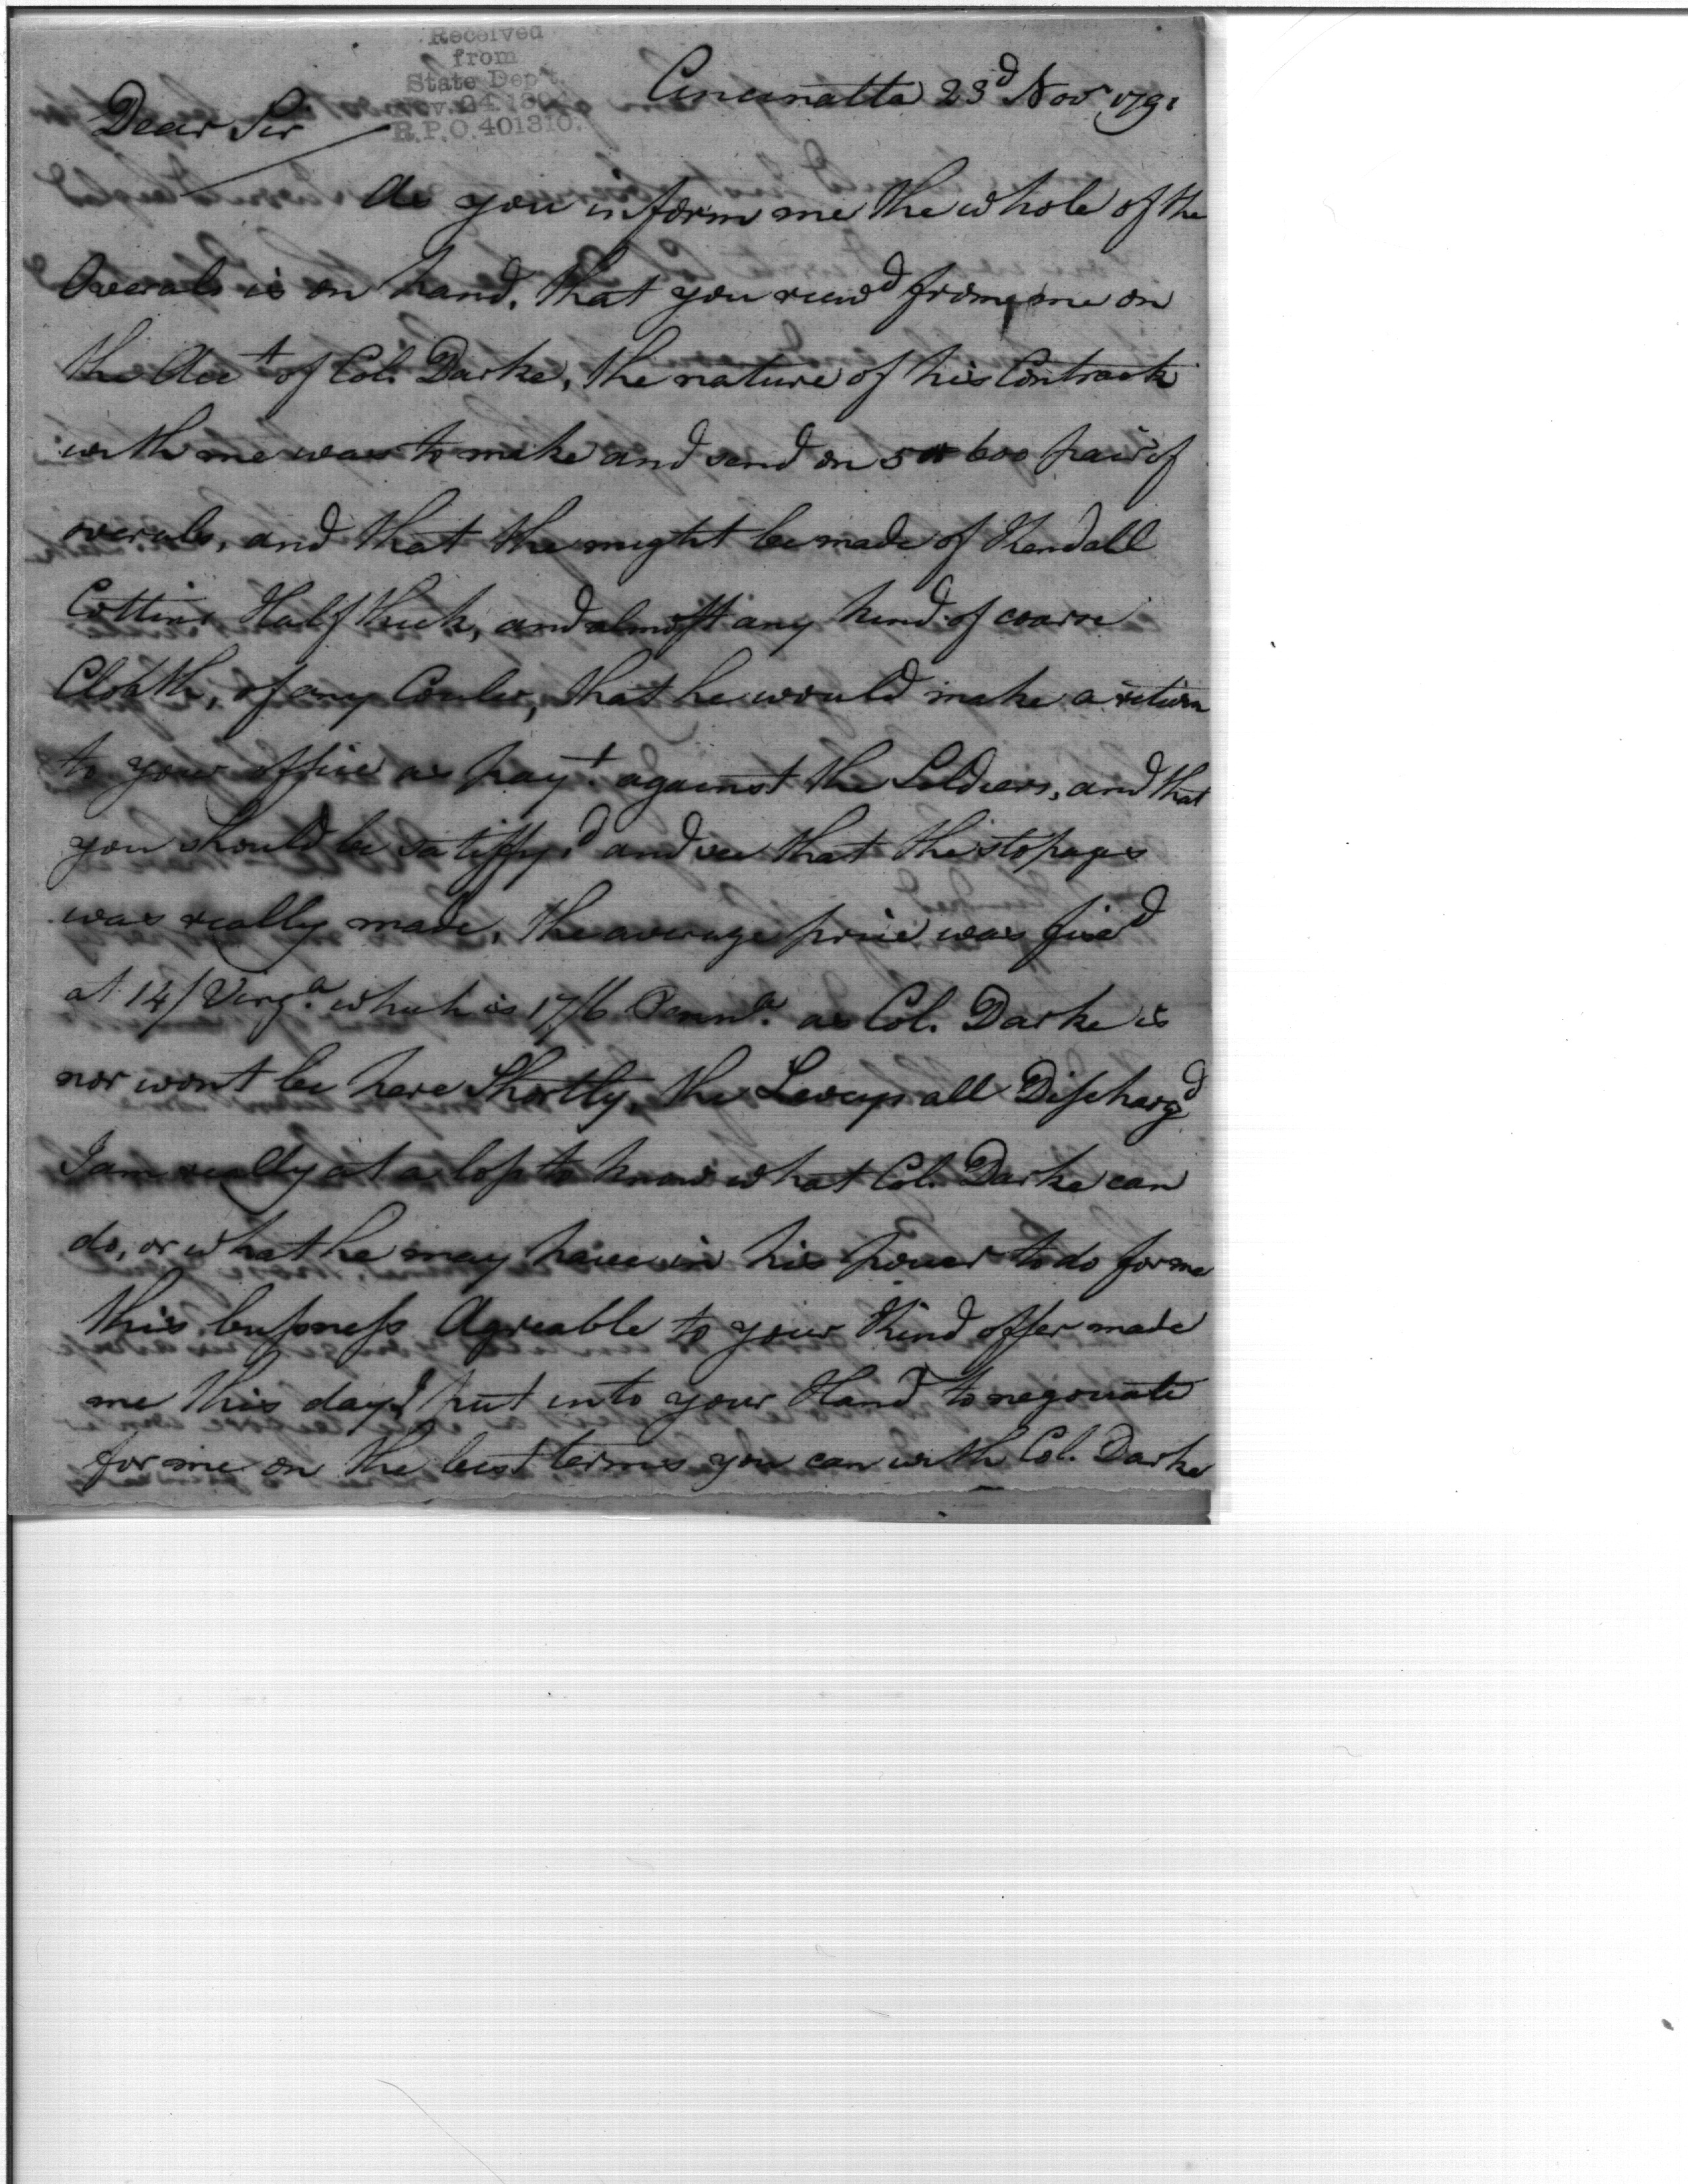 Received
from
State Dep't.
Nov. 24. 189
R.P.O. 401310.
Cincinatta 23d Nov 1791
Dear Sir
As you inform me the whole of the
Overals is on hand, that you recevd from me on
the Acct of Col. Darke, the nature of his Contract
with me was to make and send on 5 or 600 pair of
overals, and that the might be made of Kendall
Cottins Half thick, and almost any kind of coarse
Cloath, of any Couler, that he would make a return
to your office as payt. against the Soldiers, and that
you should be satisfy,d and see that the stopages
was really made, the average price was fixd
at 14/ Virga. which is 17/6 Penna. as Col. Darke is
nor wont be here Shortly, the Leveys all Dischargd
I am really at a loss to know what Col. Darke can
do, or what he may have in his power to do for me
this business Agreable to your Kind offer made
me this day I put into your Hand to negociate
for me on the best terms you can with Col. Darke